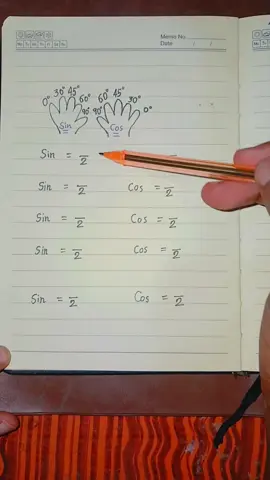 Memo No.
Mo Tu We Th Fr Sa Su
Date / /
0° 30° 45° 60° 90° 60° 45° 30° 0°
90°
Sin Cos
Sin = — 2
Sin = — 2 Cos = — 2
Sin = — 2 Cos = — 2
Sin = — 2 Cos = — 2
Sin = — 2 Cos = — 2